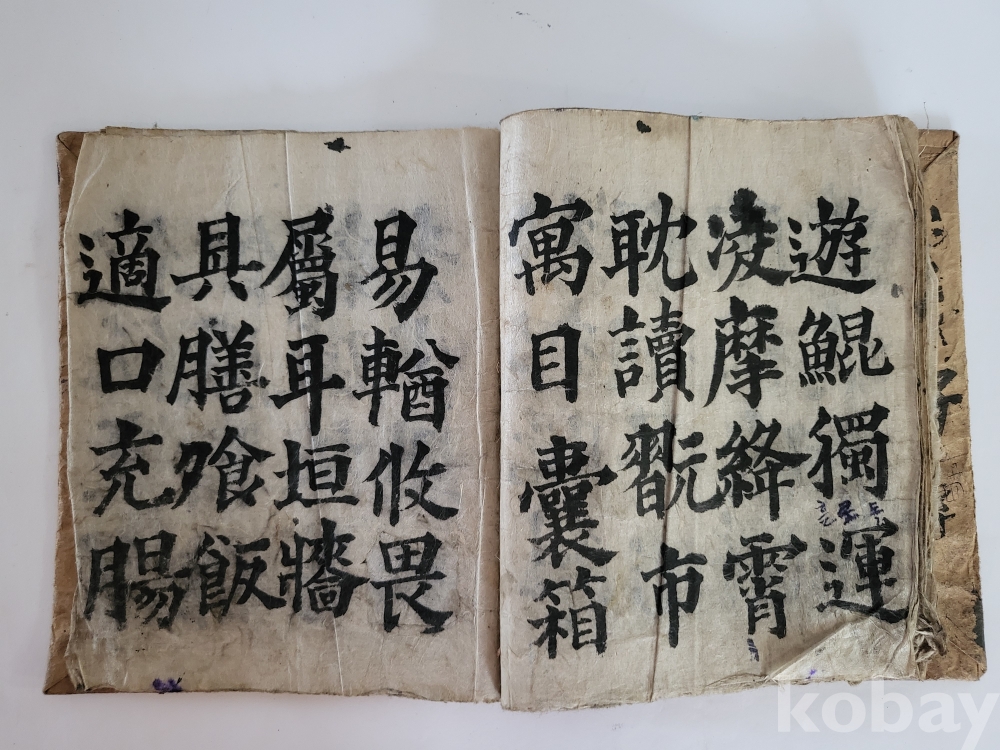 遊鯤獨運
凌摩絳霄
耽讀翫市
寓目囊箱
易輶攸畏
屬耳垣牆
具膳飱飯
適口充腸
kobay